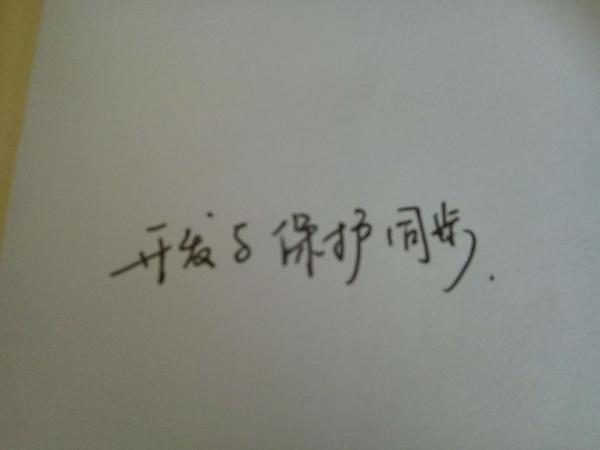 开发与保护同步.